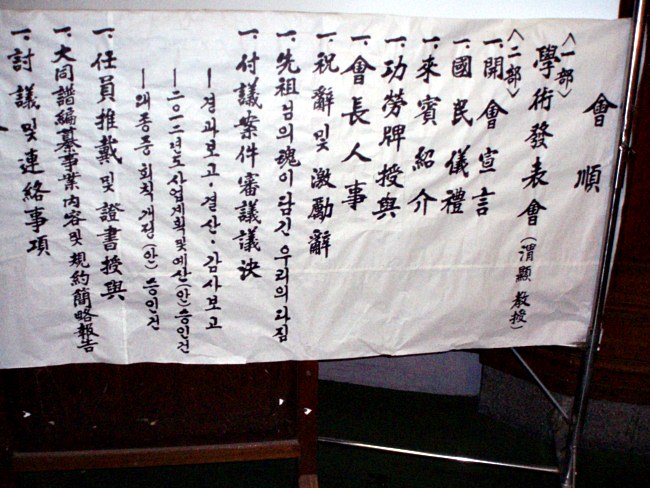 會順
<一部>
學術發表會 (渭顯 敎授)
<二部>
一. 開會宣言
一. 國民儀禮
一. 來賓紹介
一. 功勞牌授與
一. 會長人事
一. 祝辭 및 激勵辭
一. 先祖님의 魂이 담긴 우리의 다짐
一. 付議案件審議議決
— 결과보고·결산·감사보고
— 二0一二년도 사업계획 및 예산(안) 승인건
— 대종중 회칙 개정(안) 승인건
一. 任員推戴 및 證書授與
一. 大同譜編纂事業內容 및 規約簡略報告
一. 討議 및 連絡事項